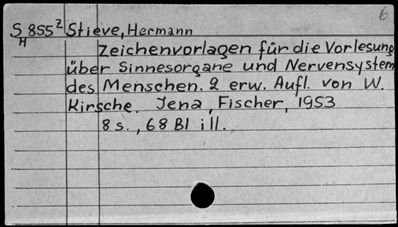 6
SH 855z Stieve, Hermann
Zeichenvorlagen für die Vorlesung
über Sinnesorgane und Nervensystem
des Menschen. 2 erw. Aufl. von W.
Kirsche. Jena, Fischer, 1953
8 s., 68 Bl ill.